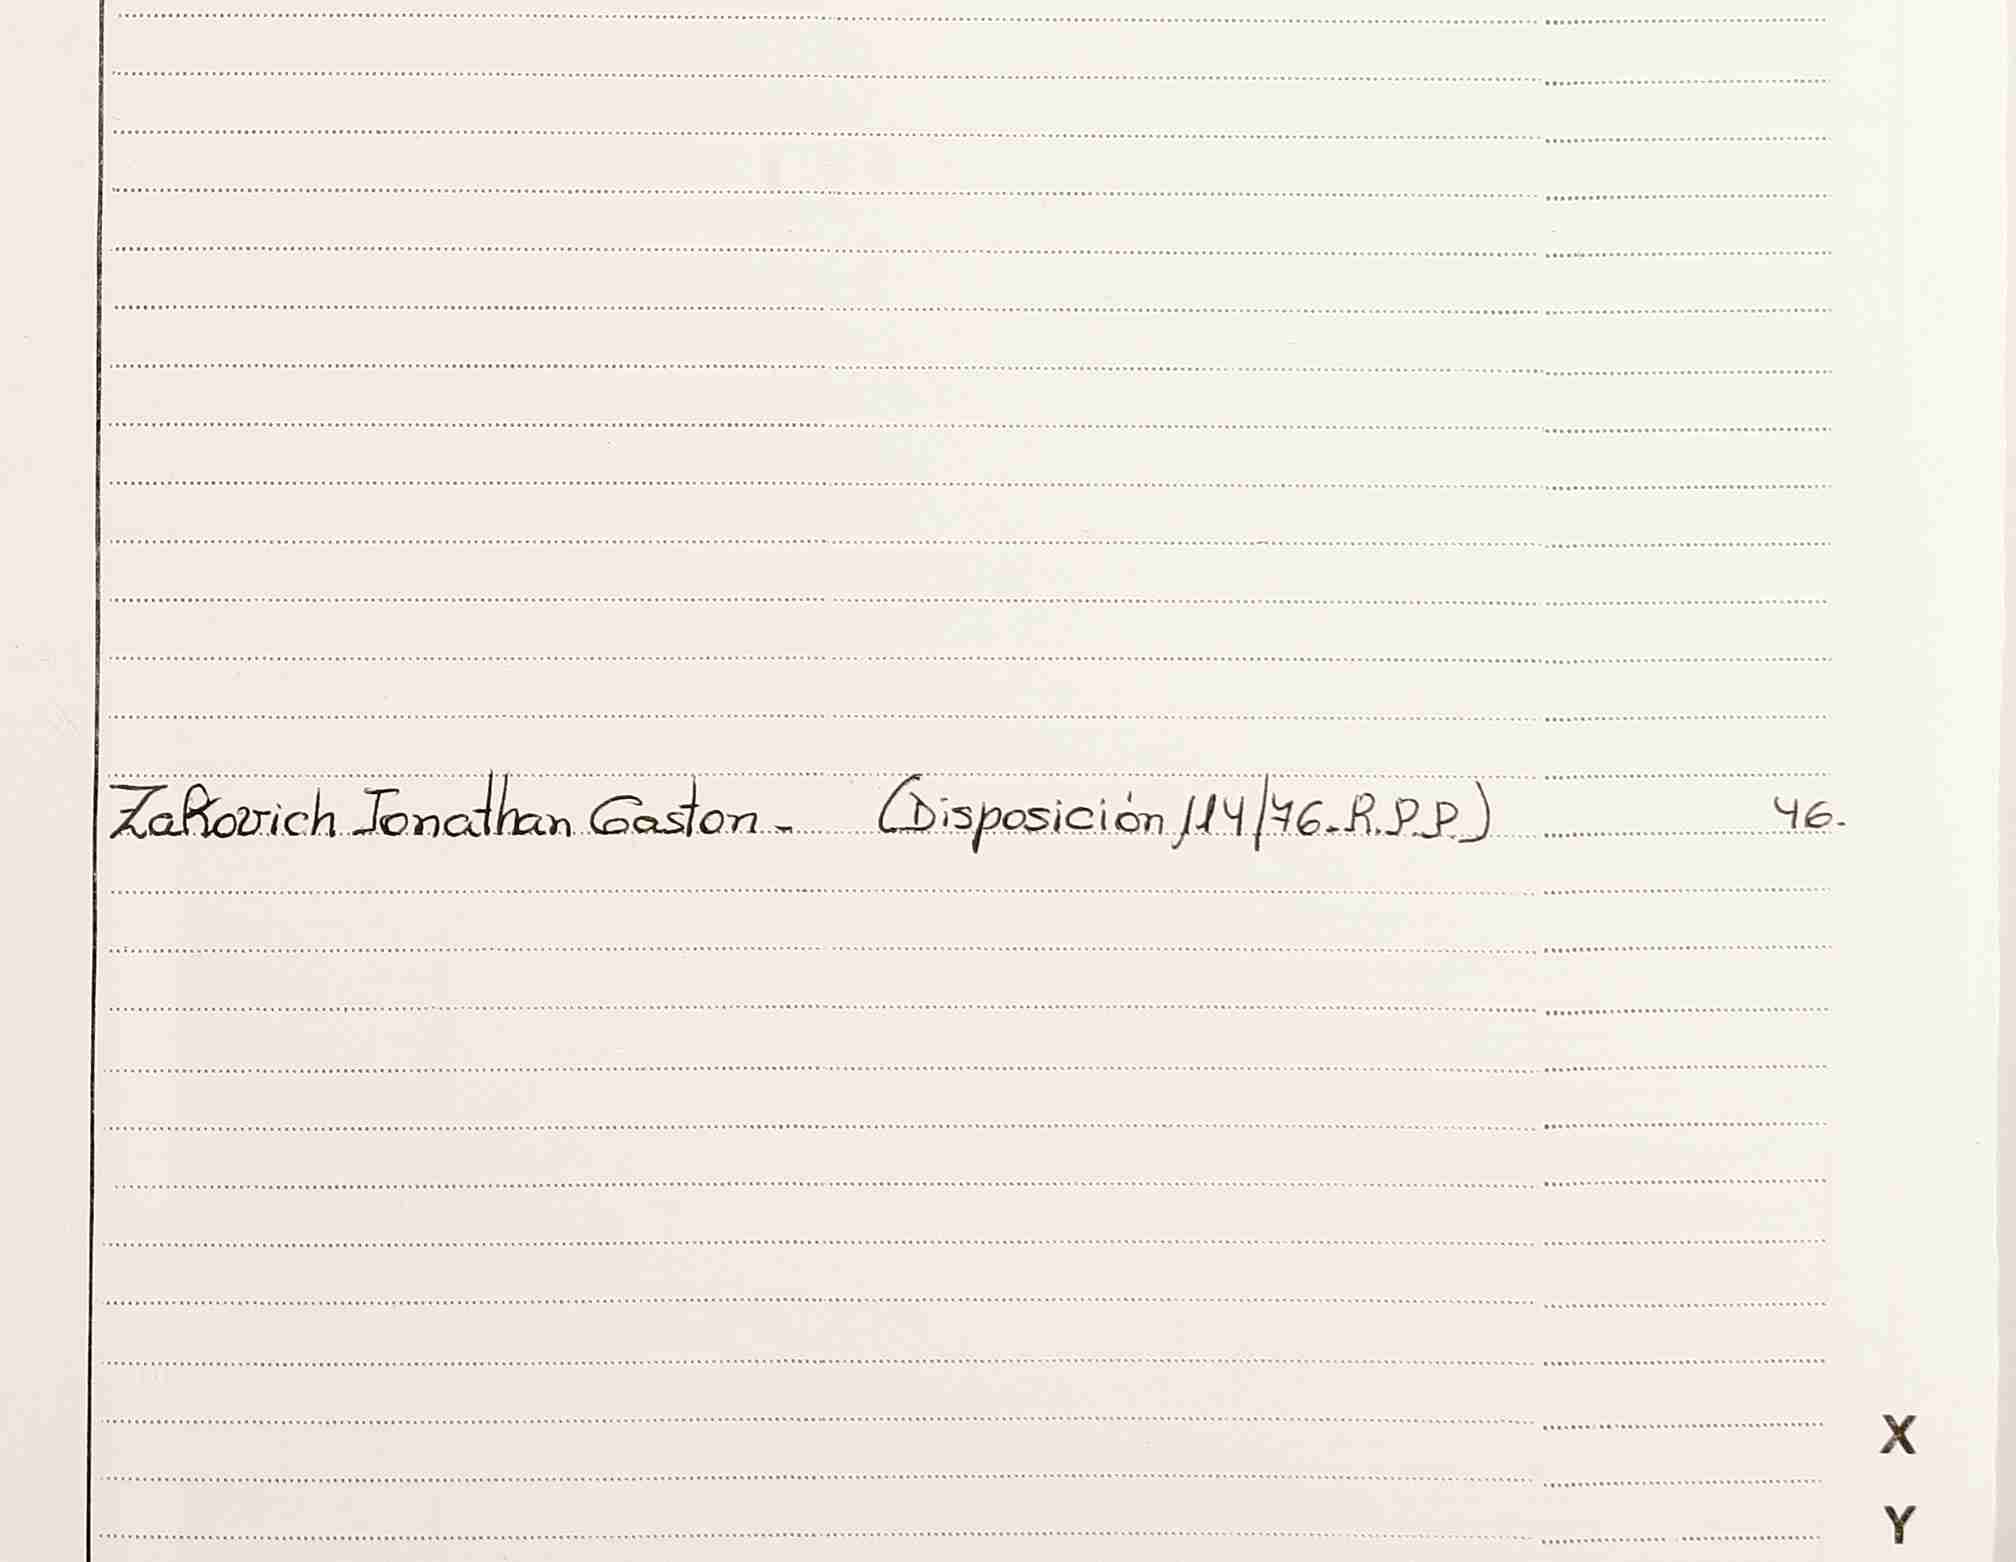 Zakovich Jonathan Gaston - (Disposición 114/76. R.P.P.) 46.
X
Y